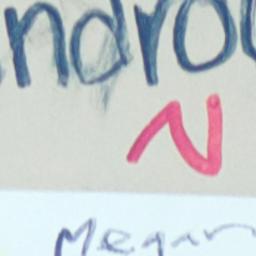 ndro
N
Megan